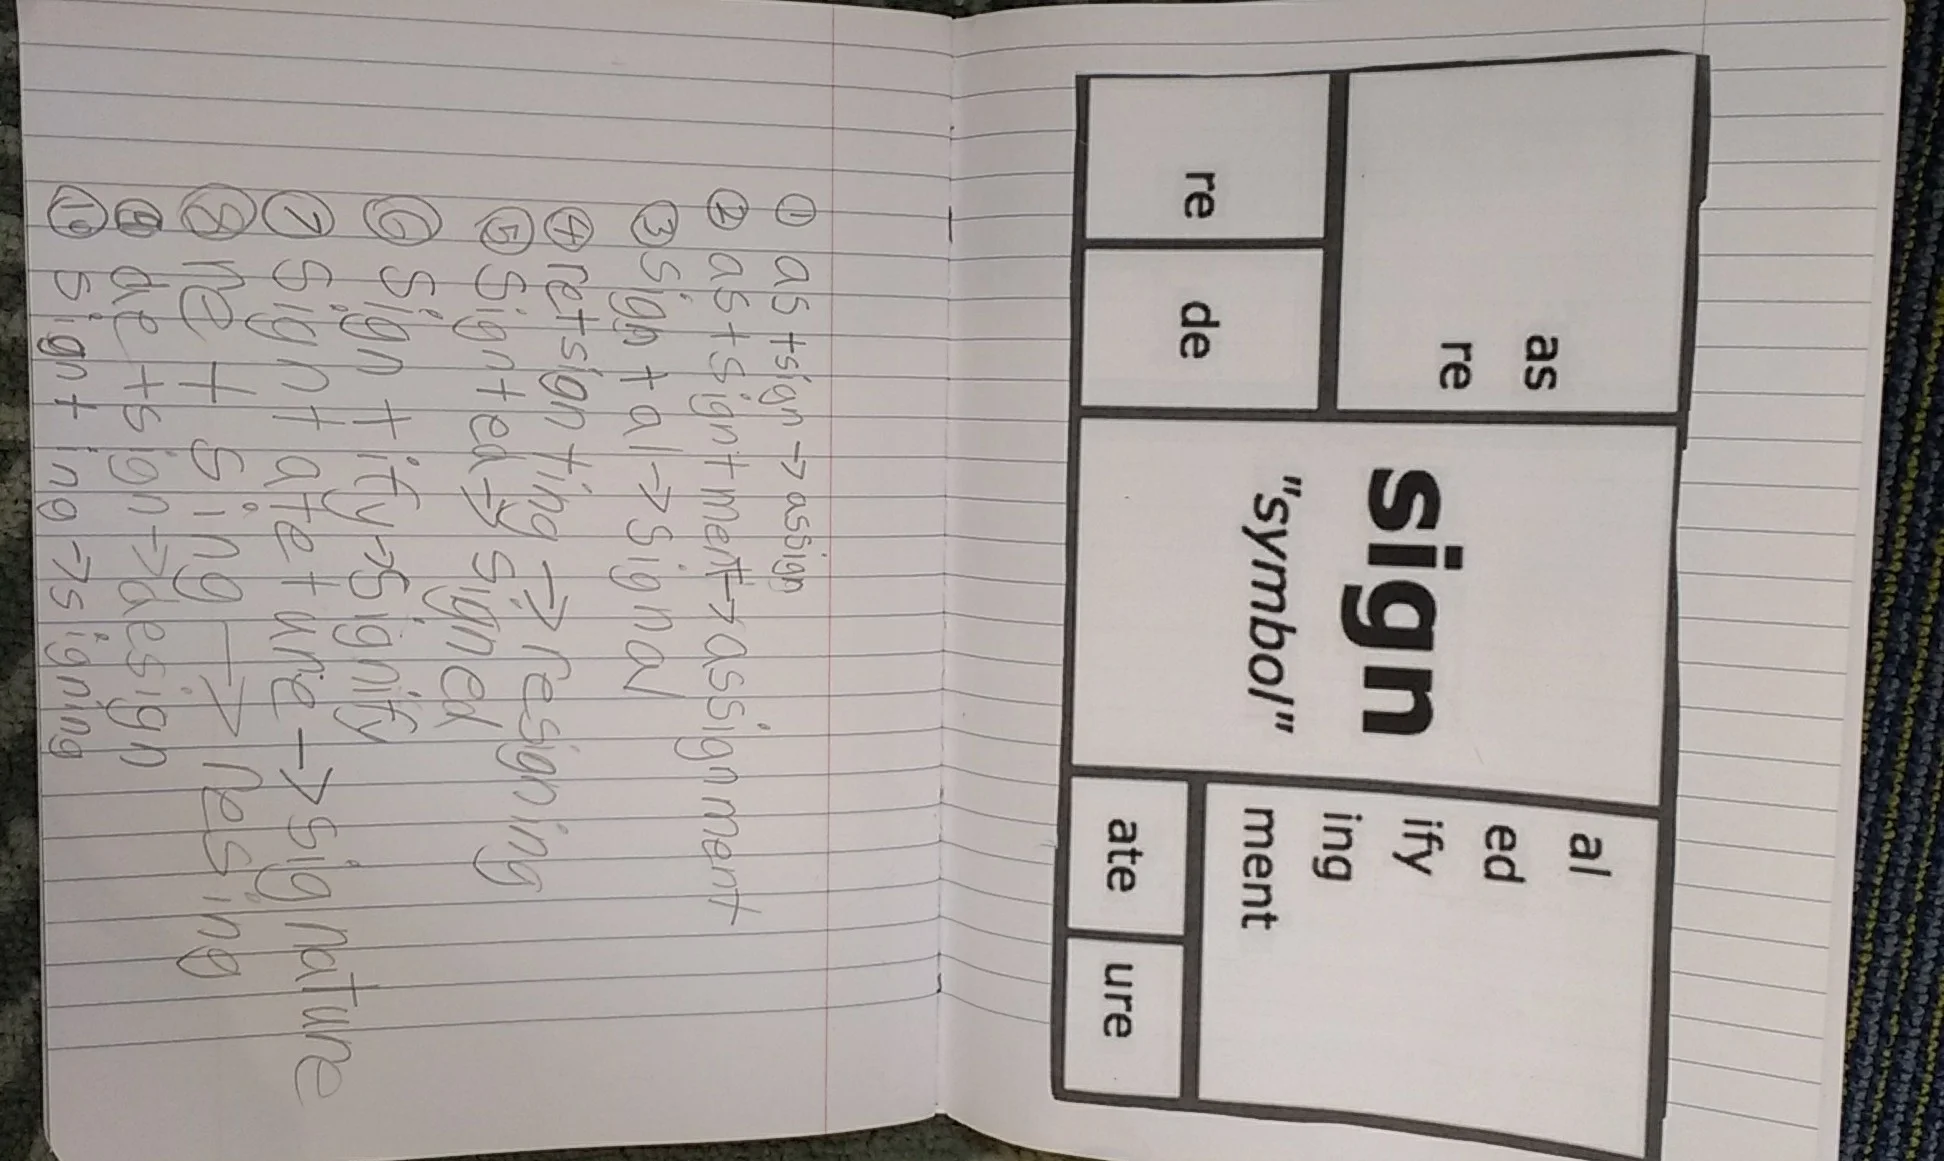 as
re
re
de
sign
"symbol"
al
ed
ify
ing
ment
ate
ure
① as + sign → assign
② as + sign + ment → assignment
③ sign + al → signal
④ re + sign + ing → resigning
⑤ sign + ed → signed
⑥ sign + ify → signify
⑦ sign + ate + ure → signature
⑧ re + sing → resing
⑨ de + sign → design
⑩ sign + ing → signing